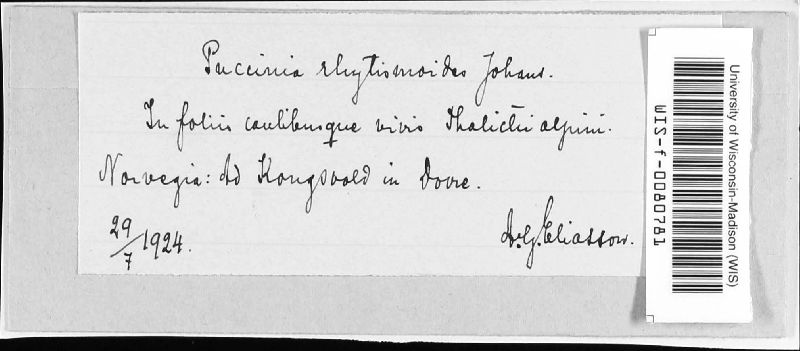 Puccinia rhytismoides Johans.
In foliis caulibusque vivis Thalictri alpini.
Norvegia: Ad Kongsvold in Dovre.
29/7 1924.
A.G. Eliasson.
University of Wisconsin-Madison (WIS)
WIS-f-0080781